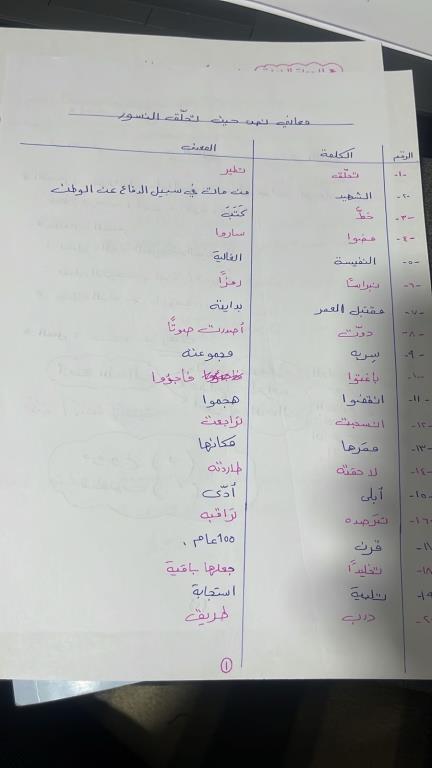 معاني نص حيث تحلّق النسور
الرقم الكلمة المعنى
-١- تحلّق تطير
-٢- الشهيد من مات في سبيل الدفاع عن الوطن
-٣- خطّ كَتَبَ
-٤- مضوا ساروا
-٥- النفيسة الغالية
-٦- نبراسًا رمزًا
-٧- مقتبل العمر بدايته
-٨- دوّت أصدرت صوتًا
-٩- سربه مجموعته
-١٠- باغتوا فاجؤوا
-١١- انقضوا هجموا
-١٢- انسحبت تراجعت
-١٣- مقرها مكانها
-١٤- لاحقته طاردته
-١٥- أبلى أدّى
-١٦- تترصده تراقبه
-١٧ قرن 100 عام.
-١٨ تخليدًا جعلها باقية
-١٩ تلبية استجابة
-٢٠ درب طريق
١